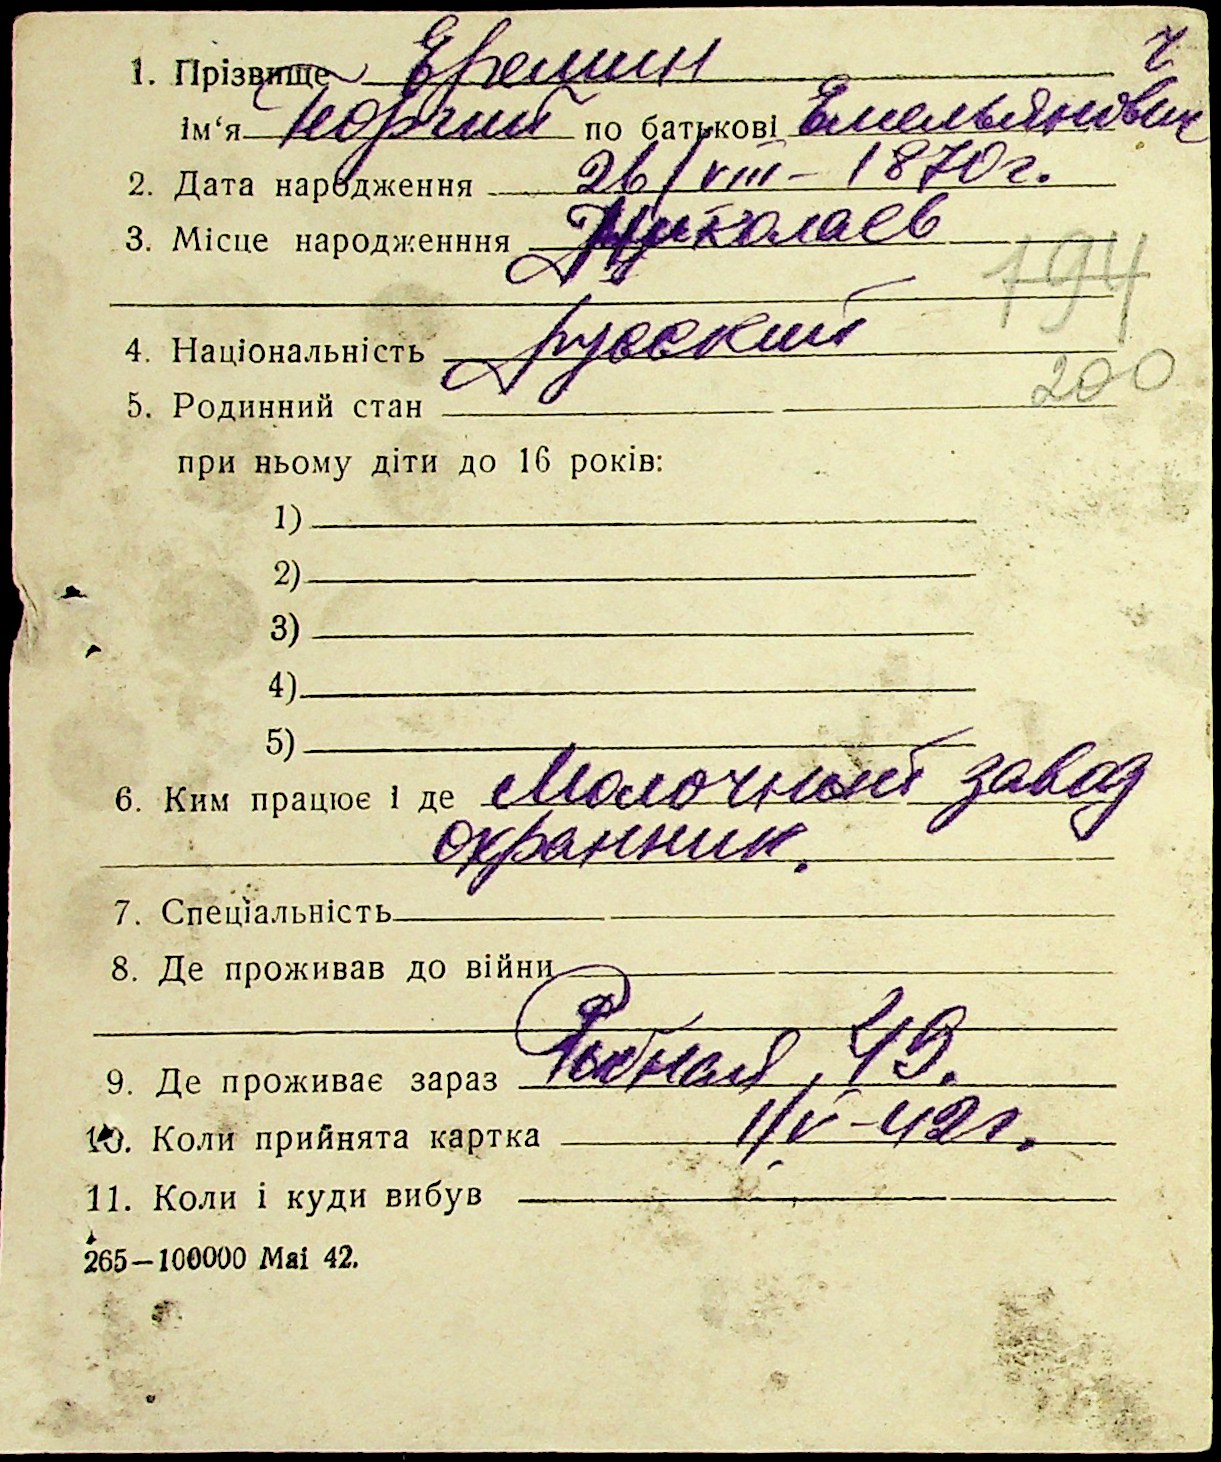 1. Прізвище Еремин ч
ім‘я Георгий по батькові Емельянович
2. Дата народження 26/VIII – 1870 г.
3. Місце народженння Николаев
194
4. Національність русский
200
5. Родинний стан
при ньому діти до 16 років:
1)
2)
3)
4)
5)
6. Ким працює і де Молочный завод
охранник.
7. Спеціальність
8. Де проживав до війни
9. Де проживає зараз Рыбная, 49.
10. Коли прийнята картка 1/V – 42 г.
11. Коли і куди вибув
265—100000 Mai 42.